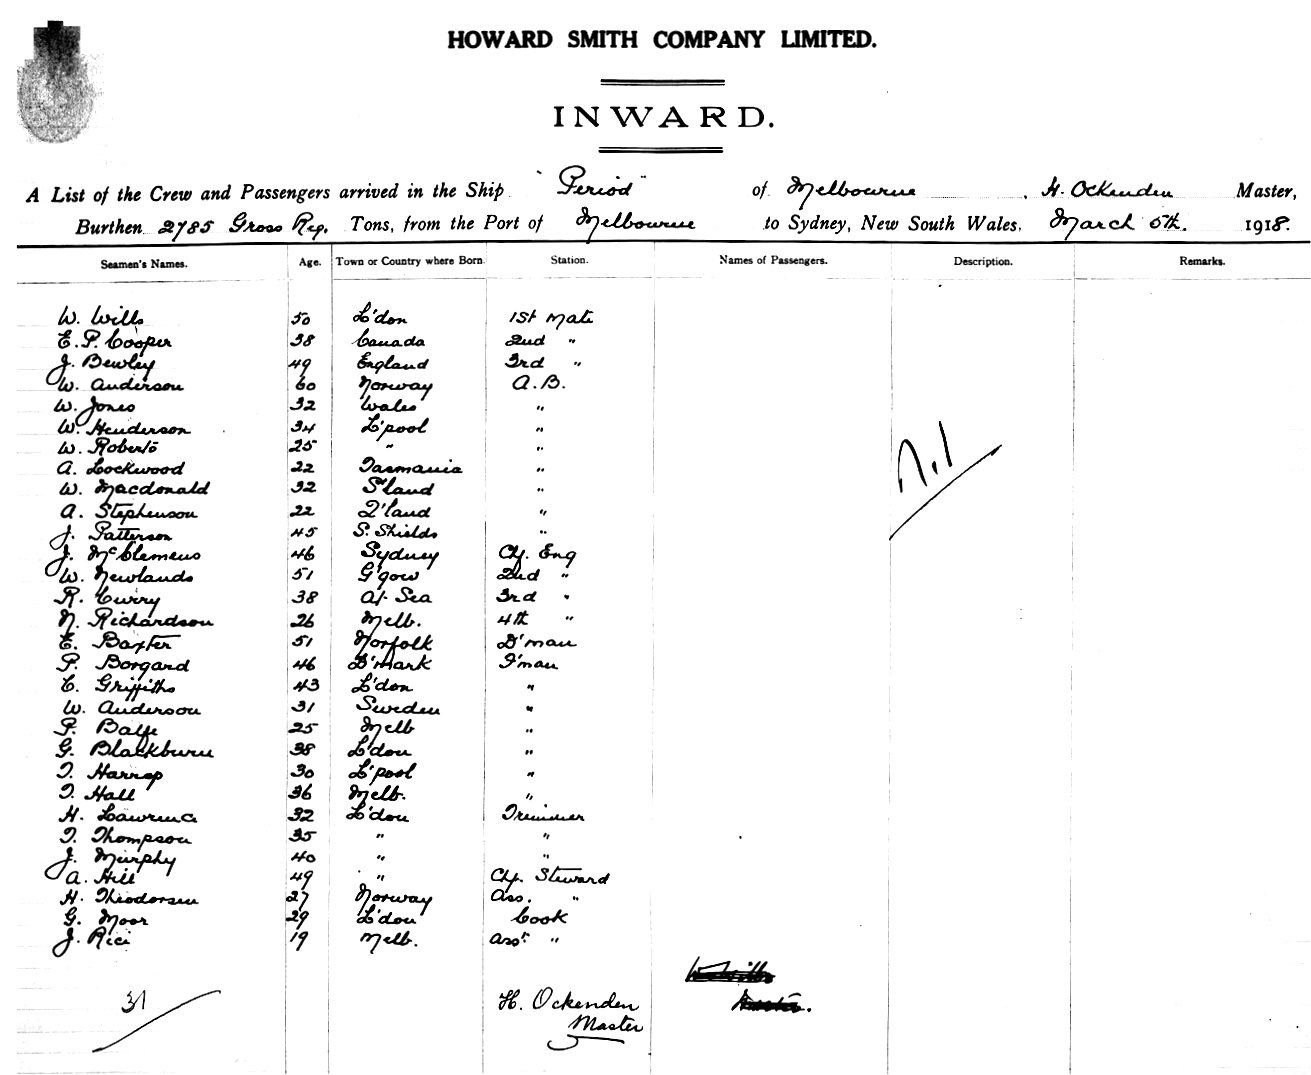 HOWARD SMITH COMPANY LIMITED.
INWARD.
A List of the Crew and Passengers arrived in the Ship "Period" of Melbourne, H. Ockenden Master,
Burthen 2785 Gross Reg. Tons, from the Port of Melbourne to Sydney, New South Wales, March 5th. 1918.
Seamen's Names. Age. Town or Country where Born. Station. Names of Passengers. Description. Remarks.
W. Wills 50 L'don 1st Mate
E. P. Cooper 38 Canada 2nd "
J. Bewley 49 England 3rd "
W. Anderson 60 Norway A.B.
W. Jones 32 Wales "
W. Henderson 34 L'pool "
W. Roberts 25 " "
A. Lockwood 22 Tasmania "
W. Macdonald 32 S'land "
A. Stephenson 22 Q'land "
J. Patterson 45 S. Shields "
J. McClemens 46 Sydney Chf. Eng
W. Newlands 51 G'gow 2nd "
R. Curry 38 At Sea 3rd "
N. Richardson 26 Melb. 4th "
E. Baxter 51 Norfolk D'man
P. Borgard 46 D'mark F'man
C. Griffiths 43 L'don "
W. Anderson 31 Sweden "
P. Balfe 25 Melb "
G. Blackburn 38 L'don "
T. Harrap 30 L'pool "
T. Hall 36 Melb. "
H. Lawrence 32 L'don Trimmer
T. Thompson 35 " "
J. Murphy 40 " "
A. Hill 49 " Chf. Steward
H. Theodorsen 27 Norway Ass. "
G. Moor 29 L'don Cook
J. Rice 19 Melb. Asst "
Nil
31
H. Ockenden
Master